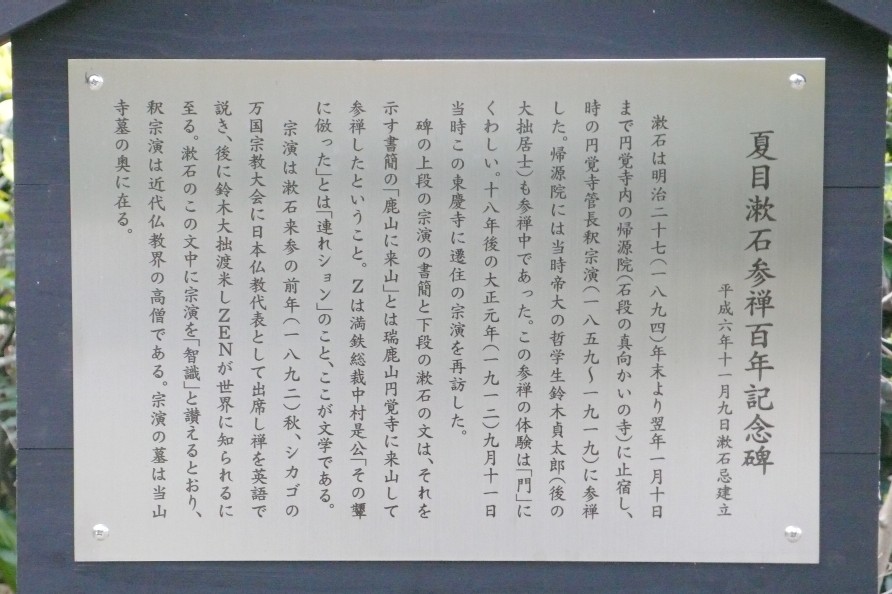 夏目漱石参禅百年記念碑
平成六年十一月九日漱石忌建立
漱石は明治二十七（一八九四）年末より翌年一月十日
まで円覚寺内の帰源院（石段の真向かいの寺）に止宿し、
時の円覚寺管長釈宗演（一八五九〜一九一九）に参禅
した。帰源院には当時帝大の哲学生鈴木貞太郎（後の
大拙居士）も参禅中であった。この参禅の体験は「門」に
くわしい。十八年後の大正元年（一九一二）九月十一日
当時この東慶寺に遷住の宗演を再訪した。
碑の上段の宗演の書簡と下段の漱石の文は、それを
示す書簡の「鹿山に来山」とは瑞鹿山円覚寺に来山して
参禅したということ。Zは満鉄総裁中村是公「その顰
に倣った」とは「連れション」のこと、ここが文学である。
宗演は漱石来参の前年（一八九二）秋、シカゴの
万国宗教大会に日本仏教代表として出席し禅を英語で
説き、後に鈴木大拙渡米しZENが世界に知られるに
至る。漱石のこの文中に宗演を「智識」と讃えるとおり、
釈宗演は近代仏教界の高僧である。宗演の墓は当山
寺墓の奥に在る。